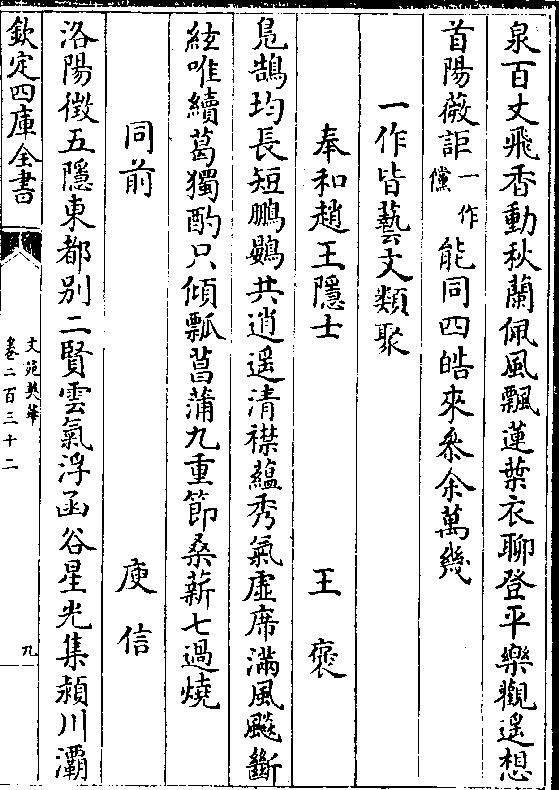 泉百丈飛香動秋蘭佩風飄蓮葉衣聊登平樂觀遥想
首陽薇詎一作儻能同四皓來叅余萬幾
一作皆藝文類聚
奉和趙王隱士 王褒
鳬鵠均長短鵬鷃共逍遥清襟藴秀氣虚席滿風飈斷
絃唯續葛獨酌只傾瓢菖蒲九重節桑薪七過燒
同前 庾信
洛陽徵五隱東都别二賢雲氣浮函谷星光集潁川灞
欽定四庫全書
文苑英華
卷二百三十二
九